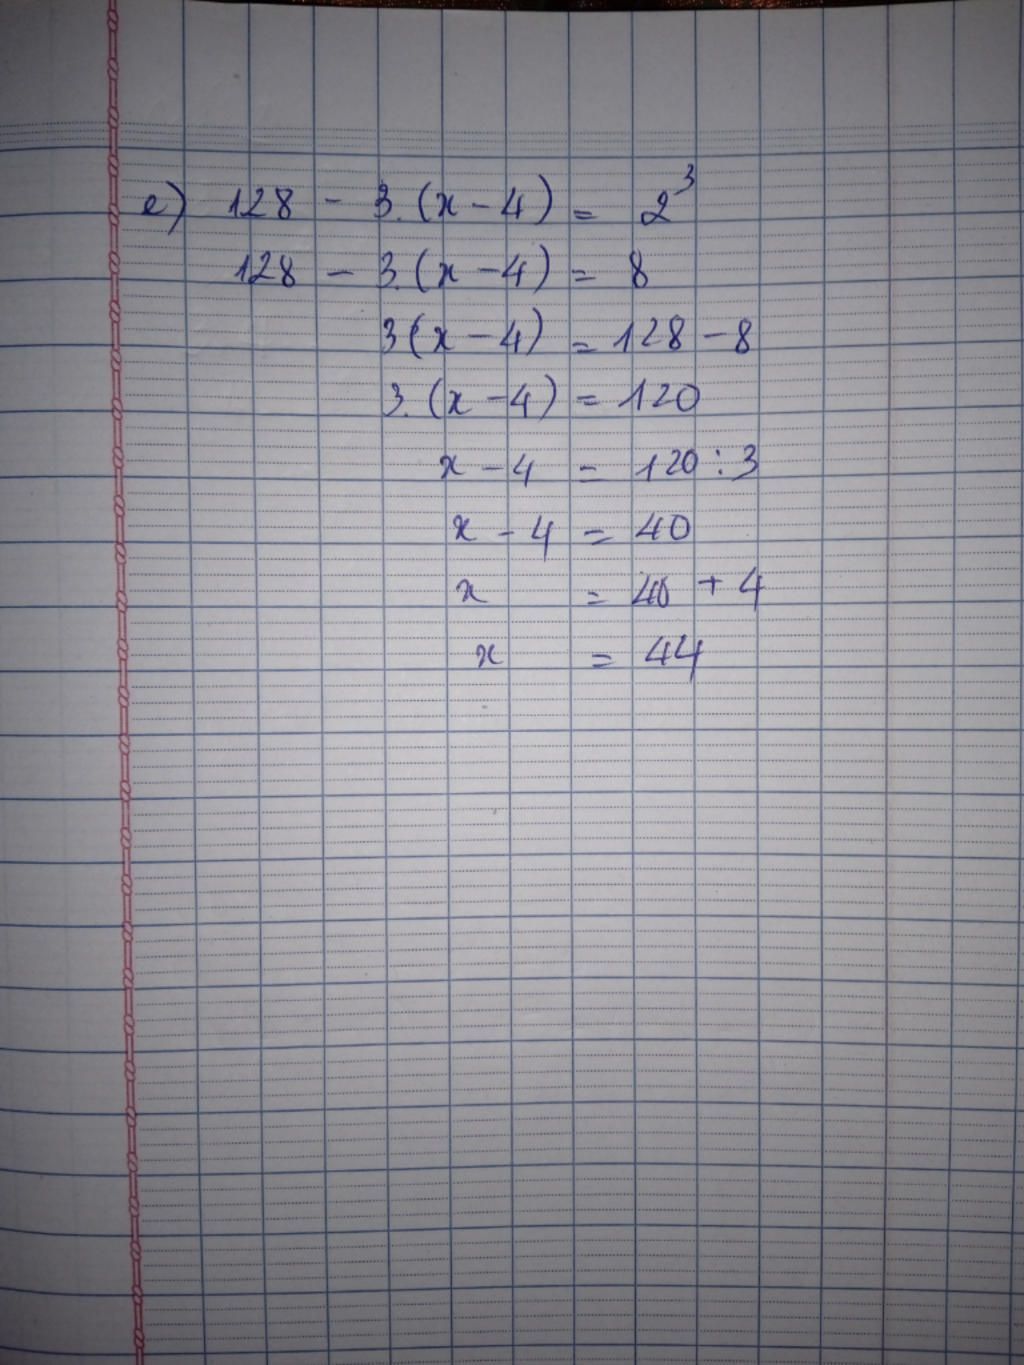 e) 128 - 3.(x - 4) = 2³
128 - 3.(x - 4) = 8
3(x - 4) = 128 - 8
3.(x - 4) = 120
x - 4 = 120 : 3
x - 4 = 40
x = 40 + 4
x = 44